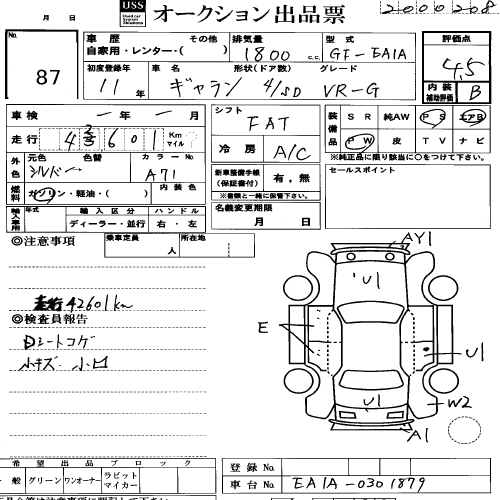 USS オークション 出品票 2000208
月 日
No. 87
車歴 その他 排気量 型式 評価点
自家用・レンター・( ) 1800 c.c. GF-EA1A 4.5
初度登録年 車名 形状(ドア数) グレード 内装
11年 ギャラン 4/SD VR-G 補助評価 B
車検 年 月 シフト 装備品 SR 純AW PS エアB
走行 42601 Km マイル FAT PW 皮 TV ナビ
冷房 A/C ※純正品に限り該当に○をつけて下さい。
外色 元色 色替 カラーNo. セールスポイント
シルバー A71
新車整備手帳 (保証書付) 有．無
燃料 ガソリン・軽油・( ) 内装色 ※書類と一緒に保管下さい。
名義変更期限
輸入車用 年式 輸入区分 ハンドル 月 日
ディーラー・並行 右・左
◎注意事項 乗車定員 人 所在地
走行42601km
◎検査員報告
Dシートコゲ
小キズ 小凹
AY1
U1
E
U1
U1
W2
A1
希望出品ブロック
一般 グリーン ワンオーナー ラビットマイカー
登録No.
車台No. EA1A-0301879